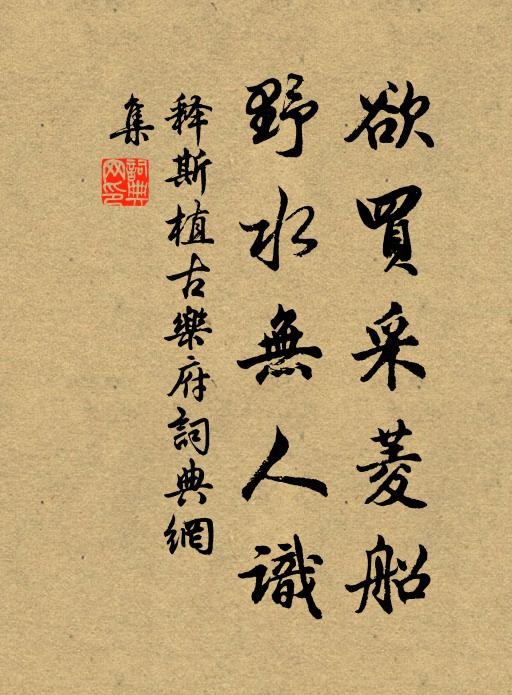 欲買采菱船
野水無人識
释斯植古樂府詞典網
集
詞典网印